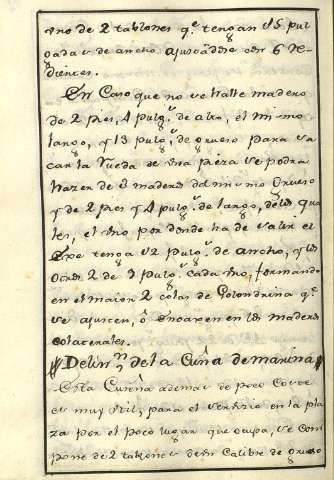 vno de 2 tablones q.e tengan 15 pul
gadas de ancho ajustãdose con 6 re-
dientes.
En Caso que no se halle madero
de 2 pies, 4 pulg.s de alto, el mismo
largo, y 13 pulg.s de grueso para sa
car la Rueda de una pieza se podra
hazer de 3 maderos del mismo Grueso
y de 2 pies y 4 pulg.s de largo, de los qua
les, el vno por donde ha de salir el
Exe tenga 12 pulg.s de ancho, y los
otros 2 de 9 pulg.s cada vno, formando
en el maior 2 colas de Golondrina q.e
se ajusten, ô encaxen en los maderos
colaterales.
Delin.on de la Cuña de marina
Esta Cureña ademas de poco coste
es muy util, para el servicio en la pla
za por el poco lugar que ocupa, se com
pone de 2 tablones de un Calibre de grueso